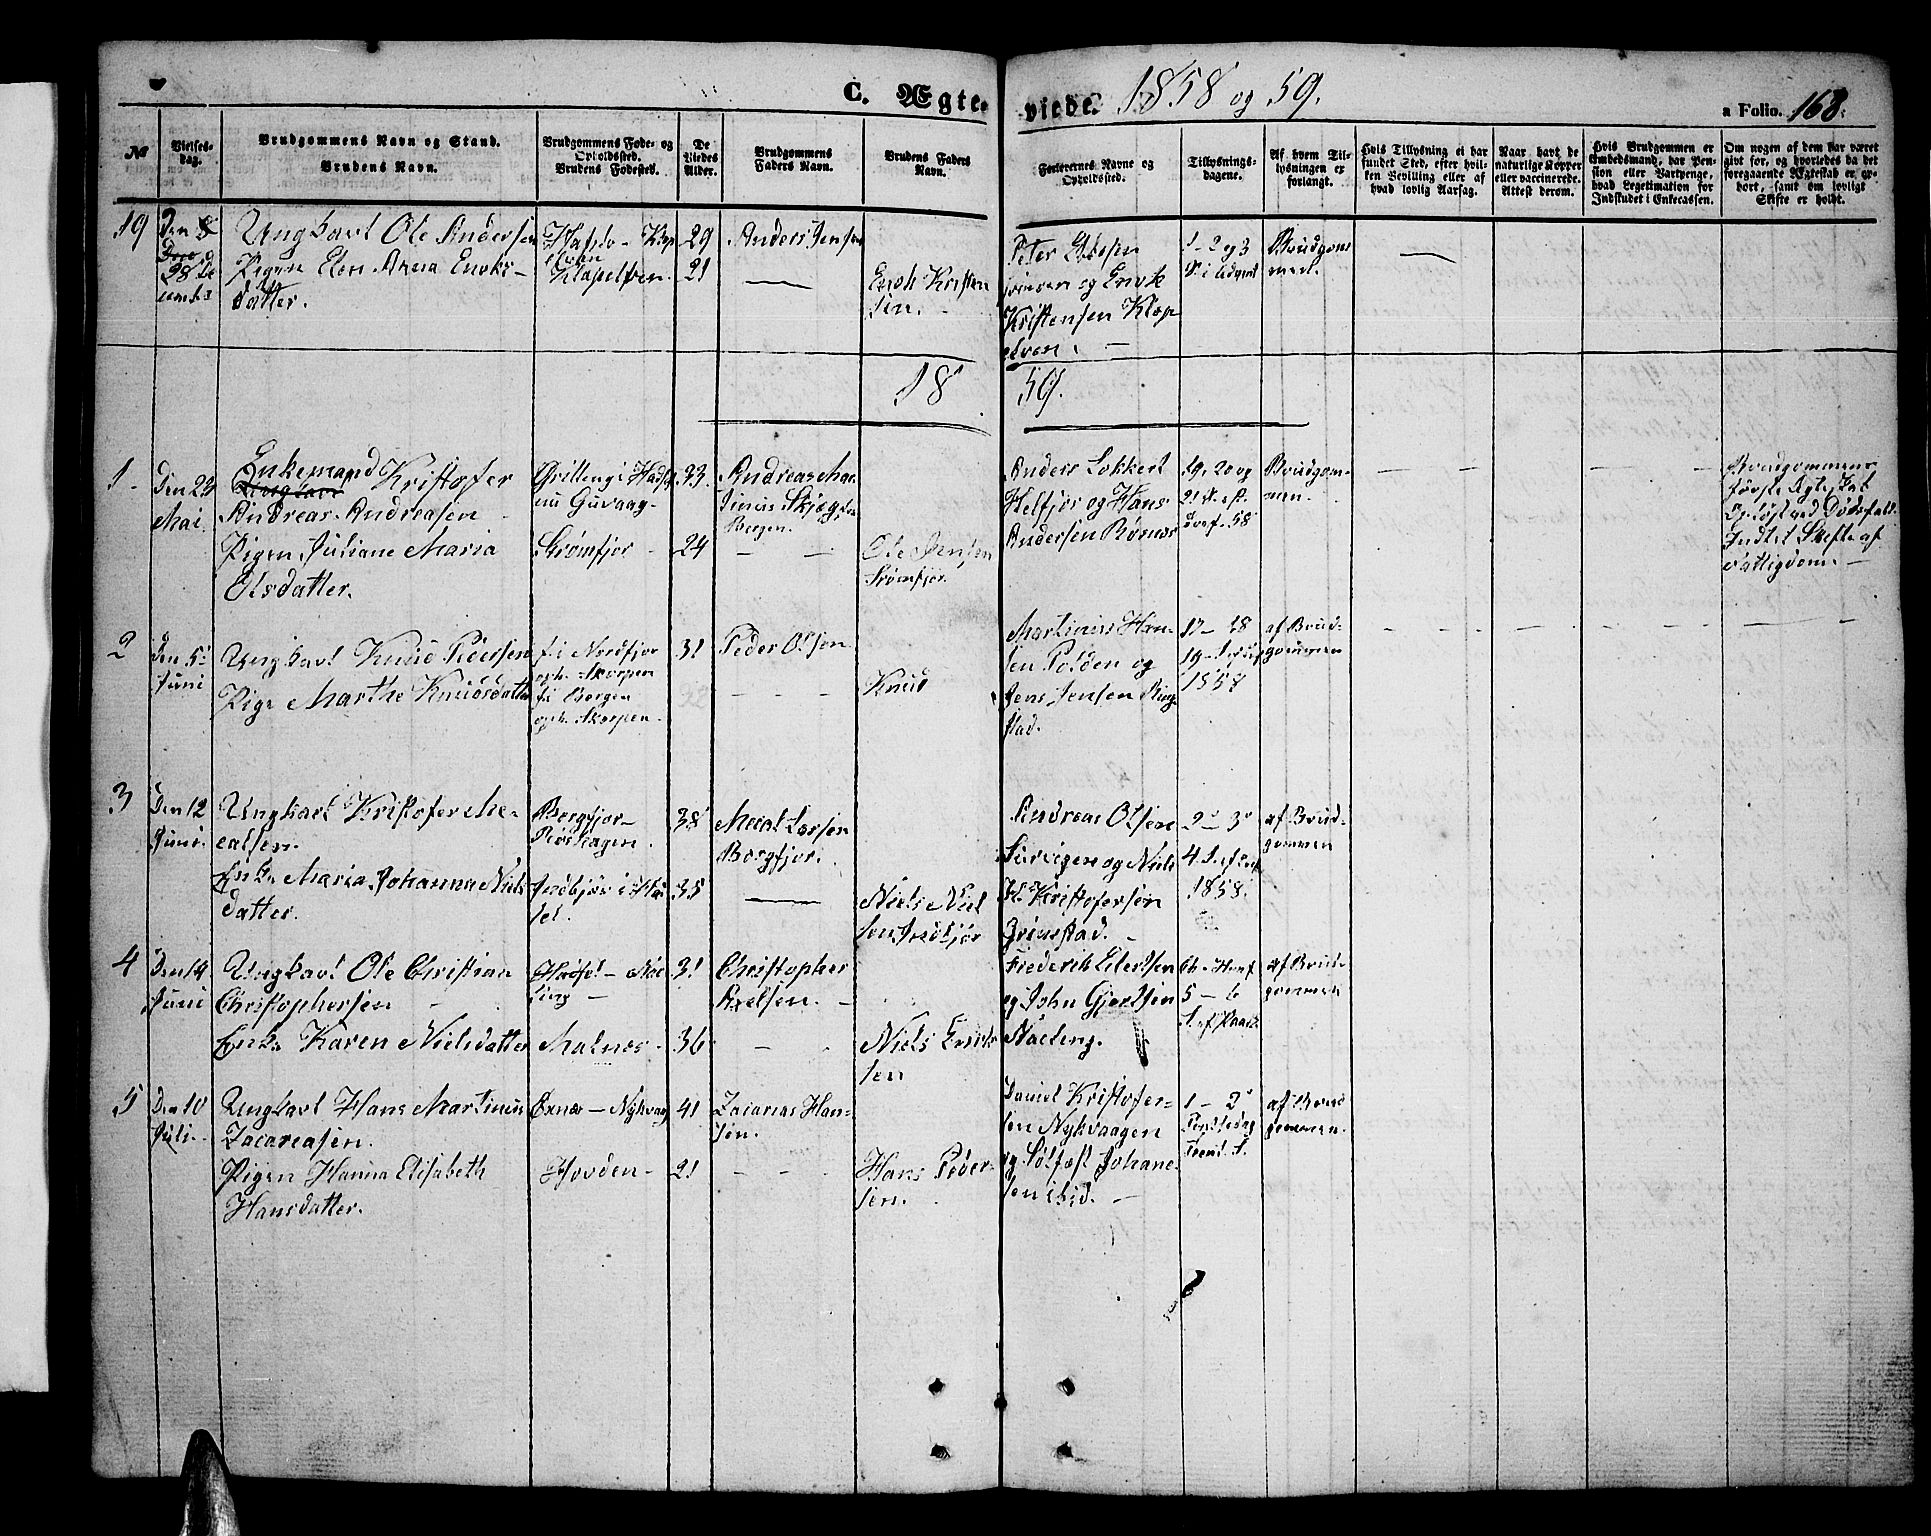 C. Ægte- viede. 1858 og 59.
a Folio. 168.
№
Vielses-
dag.
Brudgommens Navn og Stand.
Brudens Navn.
Brudgommens Føde- og
Opholdssted.
Brudens Fødested.
De
Viedes
Alder.
Brudgommens
Faders Navn.
Brudens Faders
Navn.
Forlovernes Navne og
Opholdssted.
Tillysnings-
dagene.
Af hvem Til-
lysningen er
forlangt.
Hvis Tillysning ei har
fundet Sted, efter hvil-
ken Bevilling eller af
hvad lovlig Aarsag.
Naar havt de
naturlige Kopper
eller vaccinerede.
Attest derom.
Hvis Brudgommen er
Embedsmand, har Pen-
sion eller Vartpenge,
hvad Legetimation for
Indskudet i Enkecassen.
Om nogen af dem har været
givt før, og hvorledes da det
foregaaende Ægteskab er op-
hørt, samt om lovligt
Skifte er holdt.
19
Den
28 De
cember
Ungkarl Ole Andersen
Pigen Elen Anna Enoks-
datter.
Klapelven.
29
21
Anders Jensen
Enok Kristen
sen.
Peter Ebbesen
og Enok
Kristensen Klap
elven. —
1 - 2 og 3
S. i Advent
Brudgom
men.
18 59.
1 -
Den 23
Mai.
Enkemand Kristofer
Ungkarl
Andreas Andreasen
Pigen Juliane Maria
Olsdatter.
Guvaag -
Strømfjor -
33.
24
Andreas Mar
Bergen.
Ole Jensen
Strømfjor.
Anders Lokkert
Helfjor og Hans
Andersen Rørnes
19, 20 og
21 S. ef.
58
Brudgom-
men.
Brudgommens
første Egteskab
Opløst ved Dødsfald.
Indtet Skifte af
Fattigdom. —
2
Den 5'
Juni
Ungkarl Knud Pedersen
Pige Marthe Knudsdatter
f. i Nordfjor
oph. Skorpen
f. i Bergen
oph. Skorpen.
31
22
Peder Olsen
Knud
Martinus Han-
sen Polden og
Jens Jensen Ring
stad.
17 - 18
19 -
1858
af Brud-
gommen
3
Den 12
Juni.
Ungkarl Kristofer Me-
ealsen.
Enke Maria Johanna Niels
datter.
Bergfjor-
Roshagen.
Indbjør i Had
sel.
38
35
Meeal Larsen
Borgfjor.
Niels Niel
sen Indbjør
Andreas Olsen
og Niels
H. Kristofersen
Grimstad. -
2 - 3'
4 S.
1858.
af Brud-
gommen
4
Den 19
Juni
Ungkarl Ole Christian
Christophersen
Enke Karen Nielsdatter
Hadsel - Næ
ling -
Malnes -
31
36
Christopher
Axelsen. -
Niels Enok
sen
Frederik Eilertsen
og John Gjertsen
Næling.
5 - 6
S. ef Paask
af Brud-
gommen
5
Den 10
Juli.
Ungkarl Hans Martinus
Zacareasen.
Pigen Hanna Elisabeth
Hansdatter.
Øxnes - Nykvaag
Hovden -
41
21
Zacarias Han-
sen.
Hans Peder-
sen.
Daniel Kristofer-
sen Nykvaagen
og Solfast Johane-
sen ibid. -
1 - 2'
Trenit. S.
af Brud
gommen.